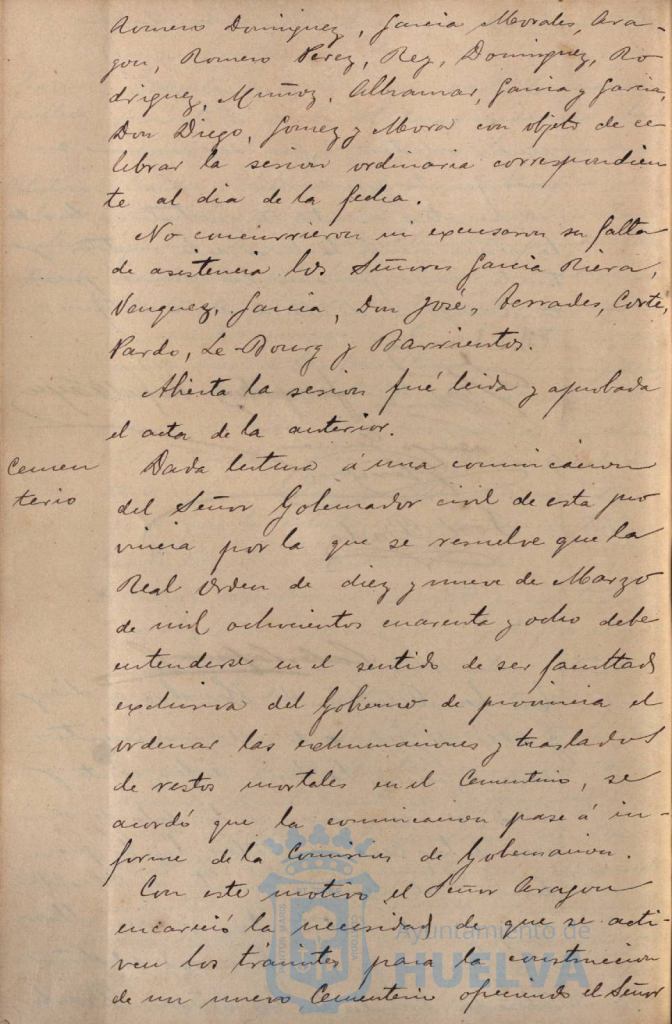 Romero Dominguez, Garcia Morales, Ara-
gon, Romero Perez, Rey, Dominguez, Ro
driguez, Muñoz, Alhamar, Garcia y Garcia,
Don Diego, Gomez y Mora con objeto de ce-
lebrar la sesion ordinaria correspondien
te al dia de la fecha.
No concurrieron ni excusaron su falta
de asistencia los Señores Garcia Riera,
Garcia, Don José, Terrades, Corte,
Pardo, Le-Bourg y Barrientos.
Abierta la sesion fué leida y aprobada
el acta de la anterior.
Cemen
terio
Dada lectura á una comunicacion
del Señor Gobernador civil de esta pro
vincia por la que se resuelve que la
Real Orden de diez y nueve de Marzo
de mil ochocientos cuarenta y ocho debe
entenderse en el sentido de ser facultad
exclusiva del Gobierno de provincia el
ordenar las exhumaciones y traslados
de restos mortales en el Cementerio, se
acordó que la comunicacion pase á in-
forme de la Comision de Gobernacion.
Con este motivo el Señor Aragon
encareció la necesidad de que se acti-
ven los trámites para la construccion
de un nuevo Cementerio ofreciendo el Señor
Ayuntamiento de
HUELVA